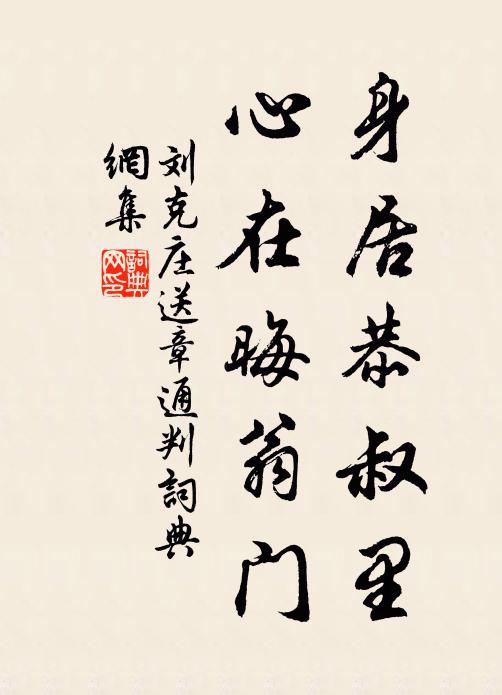 身居恭叔里
心在晦翁门
刘克庄送章通判詞典
網集
詞典网印